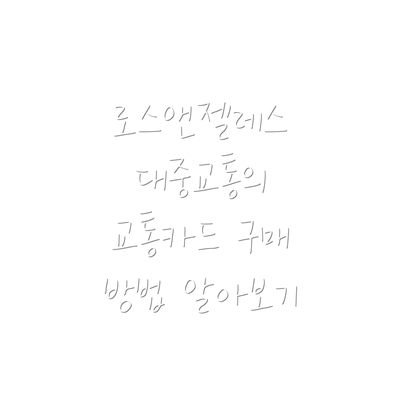 로스앤젤레스
대중교통의
교통카드 구매
방법 알아보기